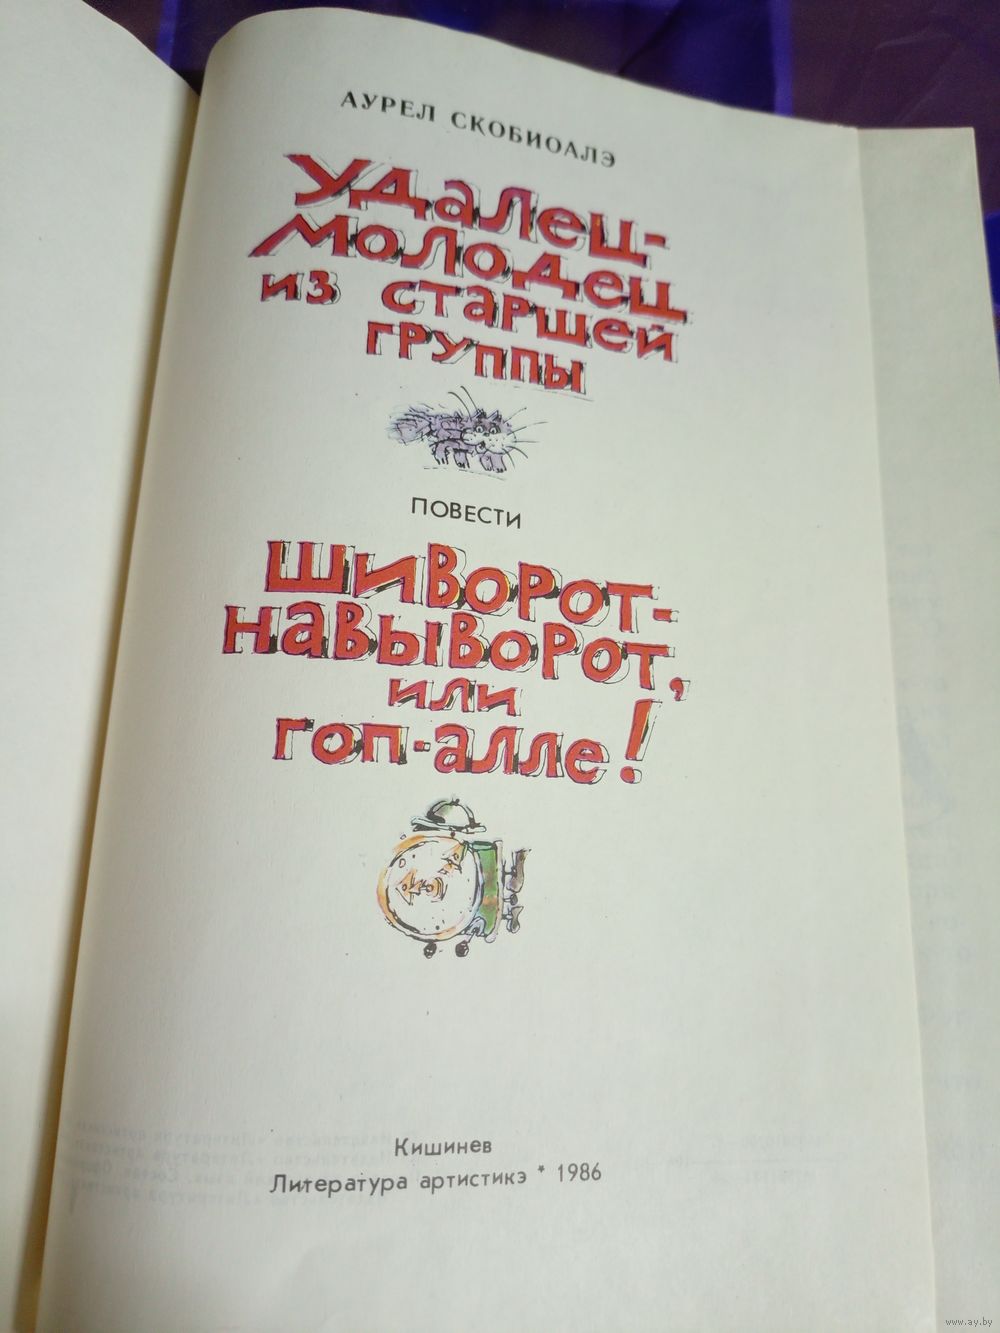 АУРЕЛ СКОБИОАЛЭ
УДАЛЕЦ-
МОЛОДЕЦ
ИЗ СТАРШЕЙ
ГРУППЫ
ПОВЕСТИ
ШИВОРОТ-
НАВЫВОРОТ,
ИЛИ
ГОП-АЛЛЕ!
Кишинев
Литература артистикэ * 1986
www.ay.by